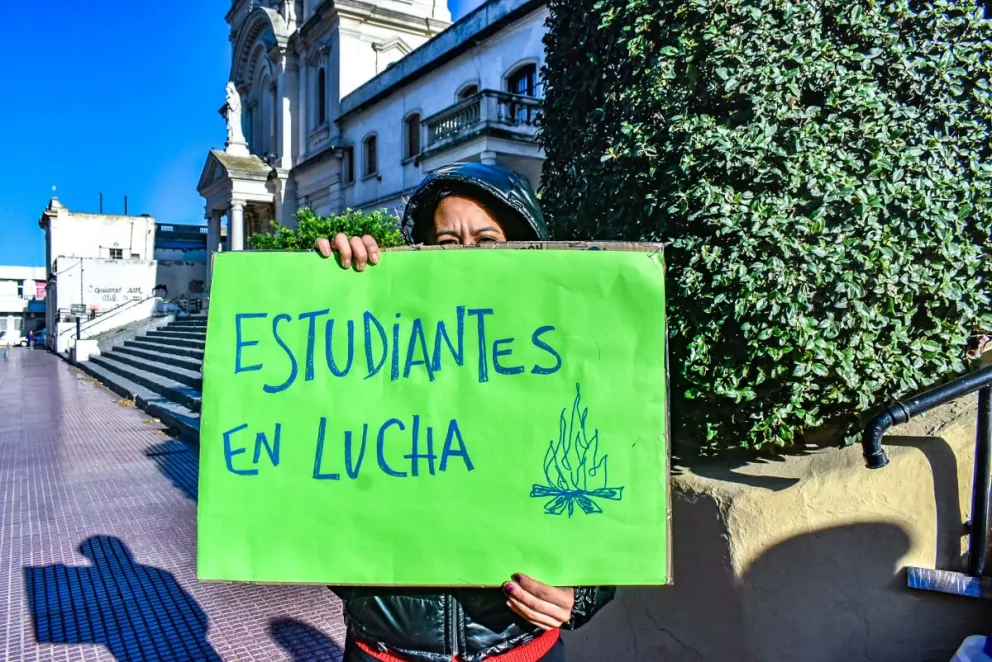 ESTUDiANTES
EN LUCHA